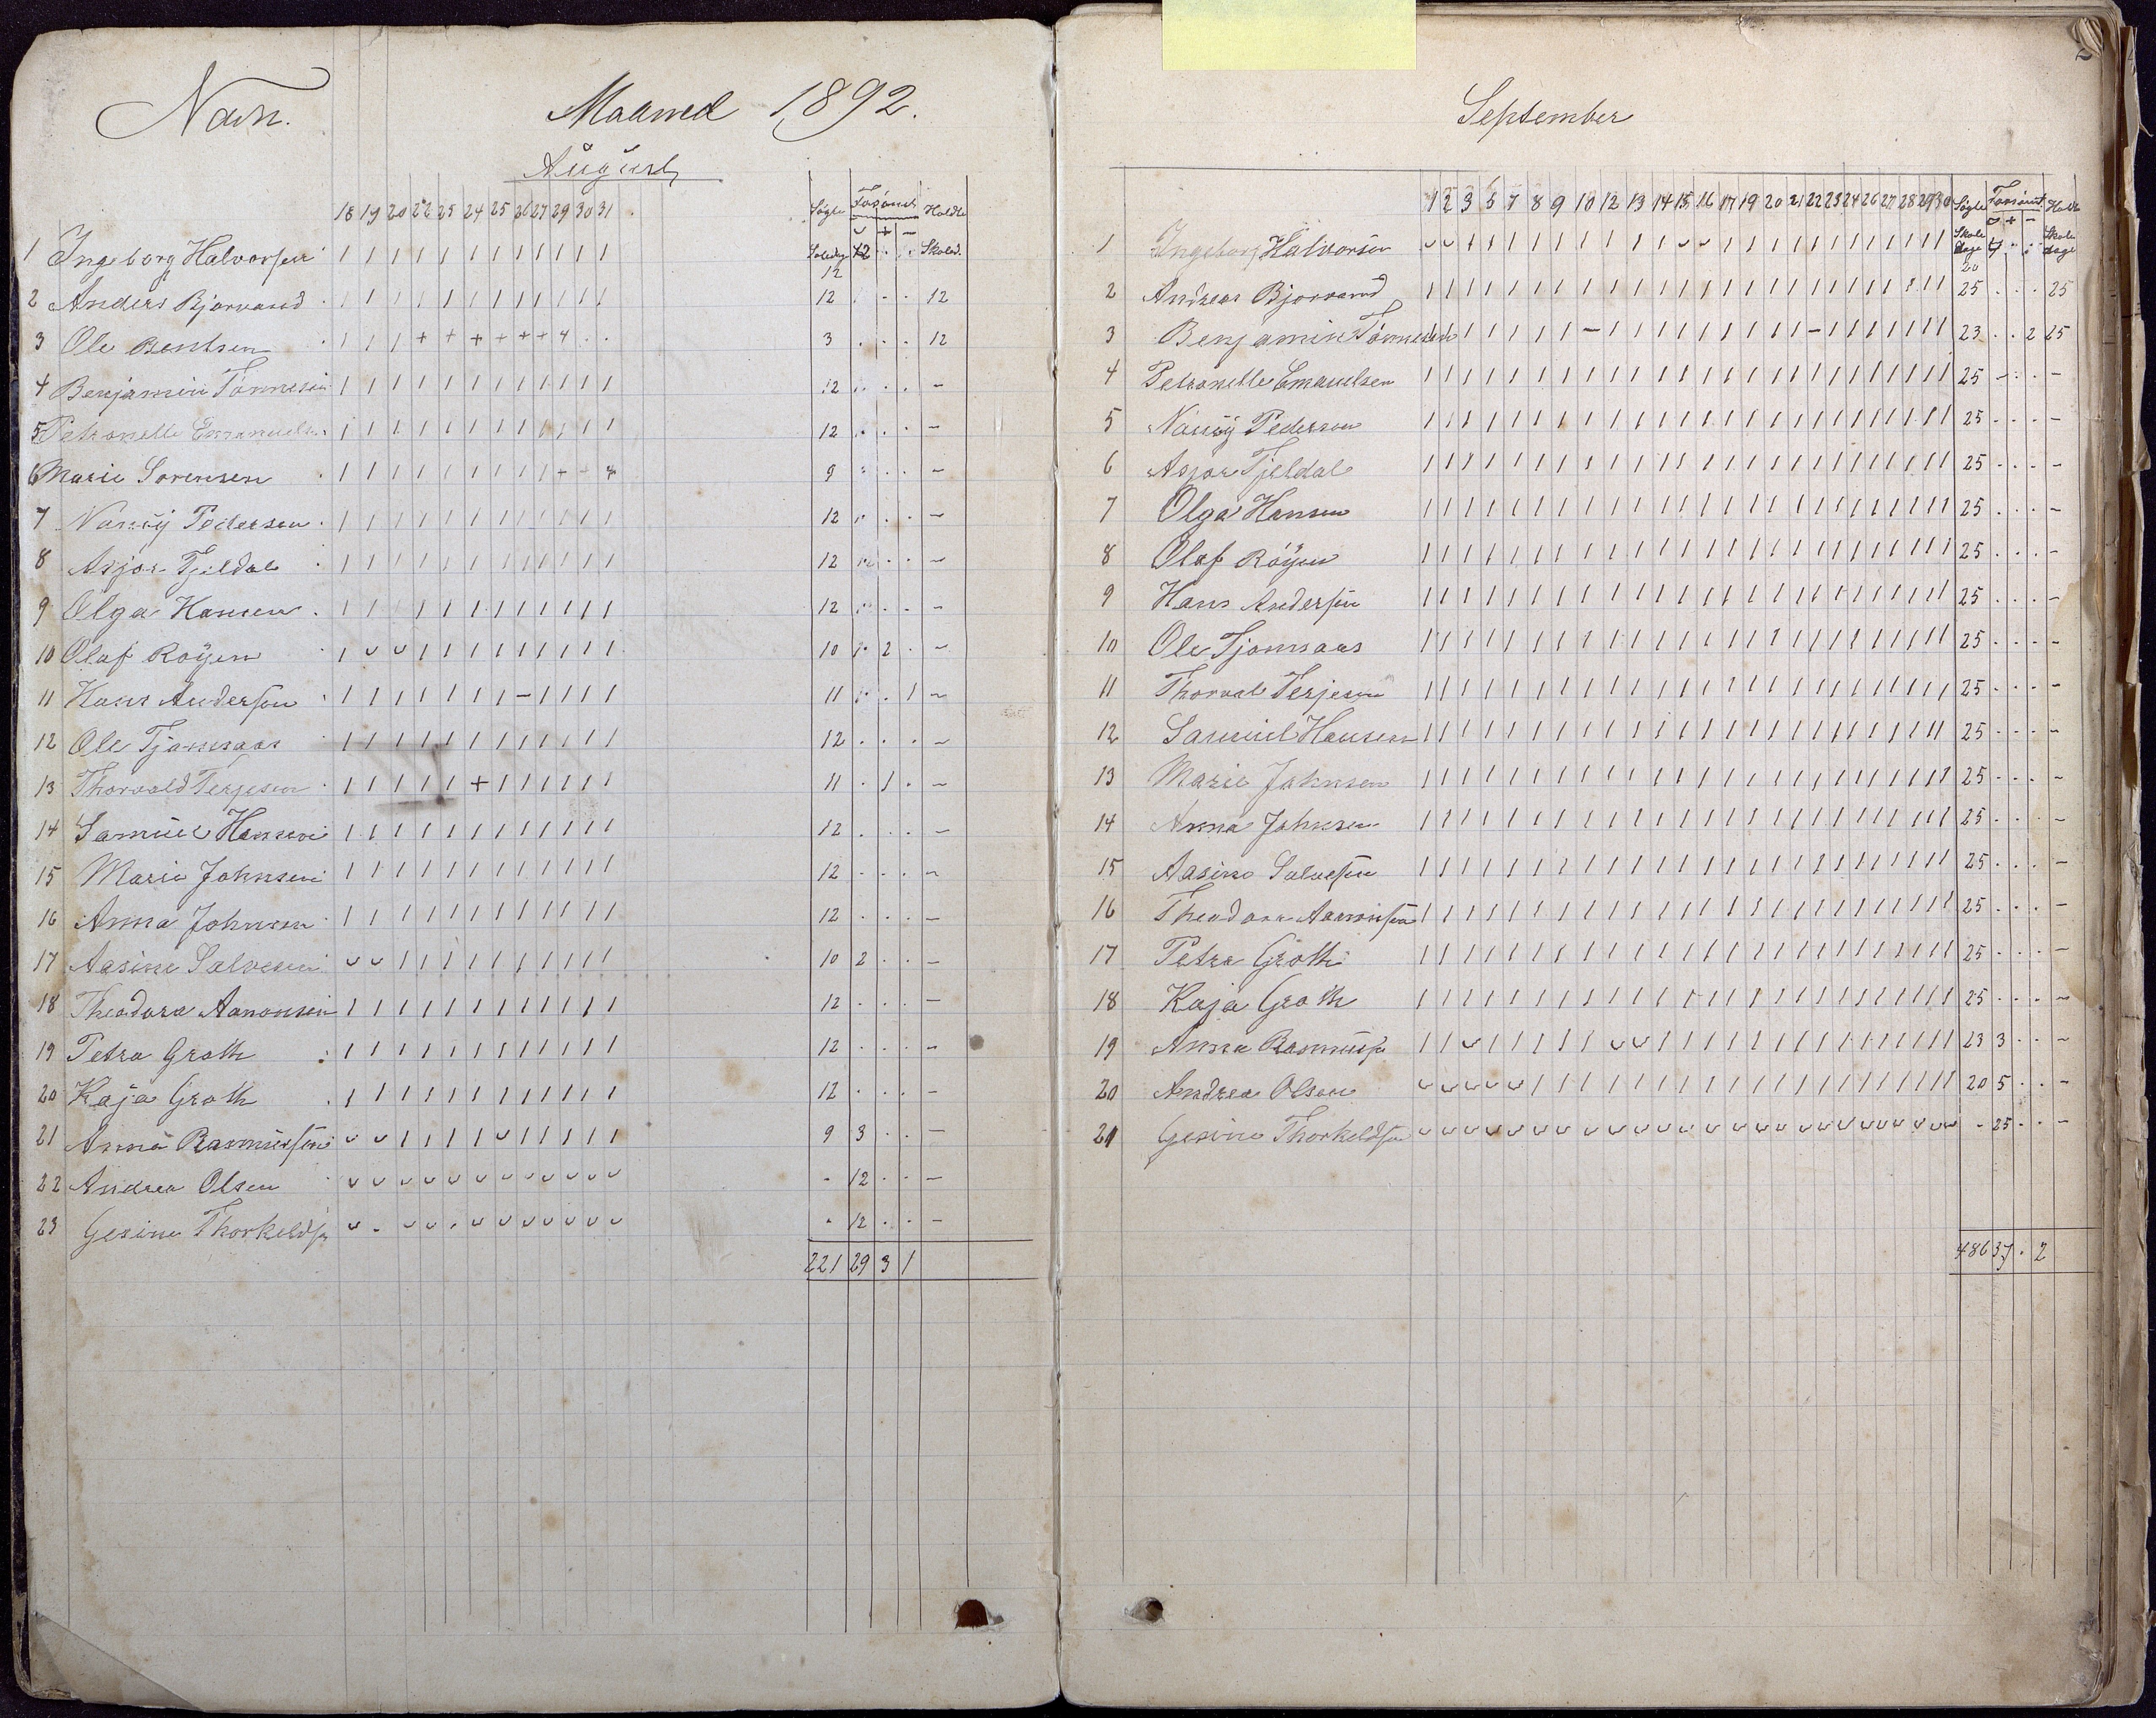 Navn.
Maaned 1892.
August
18 19 20 22 23 24 25 26 27 29 30 31
Søgte Forsømt Holdte
Skoledg ᴗ + − Skoled.
1 Ingeborg Halvorsen 1 1 1 1 1 1 1 1 1 1 1 1 12
2 Anders Bjorvand 1 1 1 1 1 1 1 1 1 1 1 1 12 . . . 12
3 Ole Bentsen 1 1 1 + + + + + + + . . 3 . . . 12
4 Benjamin Tönnesen 1 1 1 1 1 1 1 1 1 1 1 1 12 . . . −
5 Petronelle Emanuels. 1 1 1 1 1 1 1 1 1 1 1 1 12 . . . −
6 Marie Sorensen 1 1 1 1 1 1 1 1 1 + + + 9 . . . −
7 Nancÿ Pedersen 1 1 1 1 1 1 1 1 1 1 1 1 12 . . . −
8 Asjor Tjeldal 1 1 1 1 1 1 1 1 1 1 1 1 12 . . . −
9 Olga Hansen 1 1 1 1 1 1 1 1 1 1 1 1 12 . . . −
10 Olaf Röÿen 1 ᴗ ᴗ 1 1 1 1 1 1 1 1 1 10 . 2 . −
11 Hans Andersen 1 1 1 1 1 1 1 − 1 1 1 1 11 . . 1 −
12 Ole Tjomsaas 1 1 1 1 1 1 1 1 1 1 1 1 12 . . . −
13 Thorvald Terjesen 1 1 1 1 1 + 1 1 1 1 1 1 11 . 1 . −
14 Samüel Hansen 1 1 1 1 1 1 1 1 1 1 1 1 12 . . . −
15 Marie Johnsen 1 1 1 1 1 1 1 1 1 1 1 1 12 . . . −
16 Anna Johnsen 1 1 1 1 1 1 1 1 1 1 1 1 12 . . . −
17 Aasine Salvesen ᴗ ᴗ 1 1 1 1 1 1 1 1 1 1 10 2 . . −
18 Theodora Aanonsen 1 1 1 1 1 1 1 1 1 1 1 1 12 . . . −
19 Petra Groth 1 1 1 1 1 1 1 1 1 1 1 1 12 . . . −
20 Kaja Groth 1 1 1 1 1 1 1 1 1 1 1 1 12 . . . −
21 Anna Rasmüssen ᴗ ᴗ 1 1 1 1 ᴗ 1 1 1 1 1 9 3 . . −
22 Andrea Olsen ᴗ ᴗ ᴗ ᴗ ᴗ ᴗ ᴗ ᴗ ᴗ ᴗ ᴗ ᴗ - 12 . . −
23 Gesine Thorkelds ᴗ - ᴗ ᴗ . ᴗ ᴗ ᴗ ᴗ ᴗ ᴗ ᴗ - 12 . . −
221 29 3 1
2
September
1 2 3 5 7 8 9 10 12 13 14 15 16 17 19 20 21 22 23 24 26 27 28 29 30
Søgte Forsømt Hold
Skole dage ᴗ + − Skole dage
1 Ingeborg Halvorsen ᴗ ᴗ 1 1 1 1 1 1 1 1 1 ᴗ ᴗ 1 1 1 1 1 1 1 1 1 1 1 1 20
2 Andreas Bjorvand 1 1 1 1 1 1 1 1 1 1 1 1 1 1 1 1 1 1 1 1 1 1 1 1 1 25 . . . 25
3 Benjamin Tönnesen 1 1 1 1 1 1 1 − 1 1 1 1 1 1 1 1 1 − 1 1 1 1 1 1 1 23 . . 2 25
4 Petronelle Emauelsen 1 1 1 1 1 1 1 1 1 1 1 1 1 1 1 1 1 1 1 1 1 1 1 1 1 25 − . . −
5 Nancÿ Pedersen 1 1 1 1 1 1 1 1 1 1 1 1 1 1 1 1 1 1 1 1 1 1 1 1 1 25 . . . −
6 Asjor Tjeldal 1 1 1 1 1 1 1 1 1 1 1 1 1 1 1 1 1 1 1 1 1 1 1 1 1 25 . . . −
7 Olga Hansen 1 1 1 1 1 1 1 1 1 1 1 1 1 1 1 1 1 1 1 1 1 1 1 1 1 25 . . . −
8 Olaf Röÿen 1 1 1 1 1 1 1 1 1 1 1 1 1 1 1 1 1 1 1 1 1 1 1 1 1 25 . . . −
9 Hans Andersen 1 1 1 1 1 1 1 1 1 1 1 1 1 1 1 1 1 1 1 1 1 1 1 1 1 25 . . . −
10 Ole Tjomsaas 1 1 1 1 1 1 1 1 1 1 1 1 1 1 1 1 1 1 1 1 1 1 1 1 1 25 . . . −
11 Thorvale Terjesen 1 1 1 1 1 1 1 1 1 1 1 1 1 1 1 1 1 1 1 1 1 1 1 1 1 25 . . . −
12 Samuel Hansen 1 1 1 1 1 1 1 1 1 1 1 1 1 1 1 1 1 1 1 1 1 1 1 1 1 25 . . . −
13 Marie Johnsen 1 1 1 1 1 1 1 1 1 1 1 1 1 1 1 1 1 1 1 1 1 1 1 1 1 25 . . . −
14 Anna Johnsen 1 1 1 1 1 1 1 1 1 1 1 1 1 1 1 1 1 1 1 1 1 1 1 1 1 25 . . . −
15 Aasine Salvesen 1 1 1 1 1 1 1 1 1 1 1 1 1 1 1 1 1 1 1 1 1 1 1 1 1 25 . . . −
16 Theodora Aanonsen 1 1 1 1 1 1 1 1 1 1 1 1 1 1 1 1 1 1 1 1 1 1 1 1 1 25 . . . −
17 Petra Groth 1 1 1 1 1 1 1 1 1 1 1 1 1 1 1 1 1 1 1 1 1 1 1 1 1 25 . . . −
18 Kaja Groth 1 1 1 1 1 1 1 1 1 1 1 1 1 1 1 1 1 1 1 1 1 1 1 1 1 25 . . . −
19 Anna Rasmüss 1 1 ᴗ 1 1 1 1 1 ᴗ ᴗ 1 1 1 1 1 1 1 1 1 1 1 1 1 1 1 23 3 . . −
20 Andrea Olsen ᴗ ᴗ ᴗ ᴗ ᴗ 1 1 1 1 1 1 1 1 1 1 1 1 1 1 1 1 1 1 1 1 20 5 . . −
21 Gesine Thorkelds ᴗ ᴗ ᴗ ᴗ ᴗ ᴗ ᴗ ᴗ ᴗ ᴗ ᴗ ᴗ ᴗ ᴗ ᴗ ᴗ ᴗ ᴗ ᴗ ᴗ ᴗ ᴗ ᴗ ᴗ ᴗ - 25 . . −
486 37 . 2